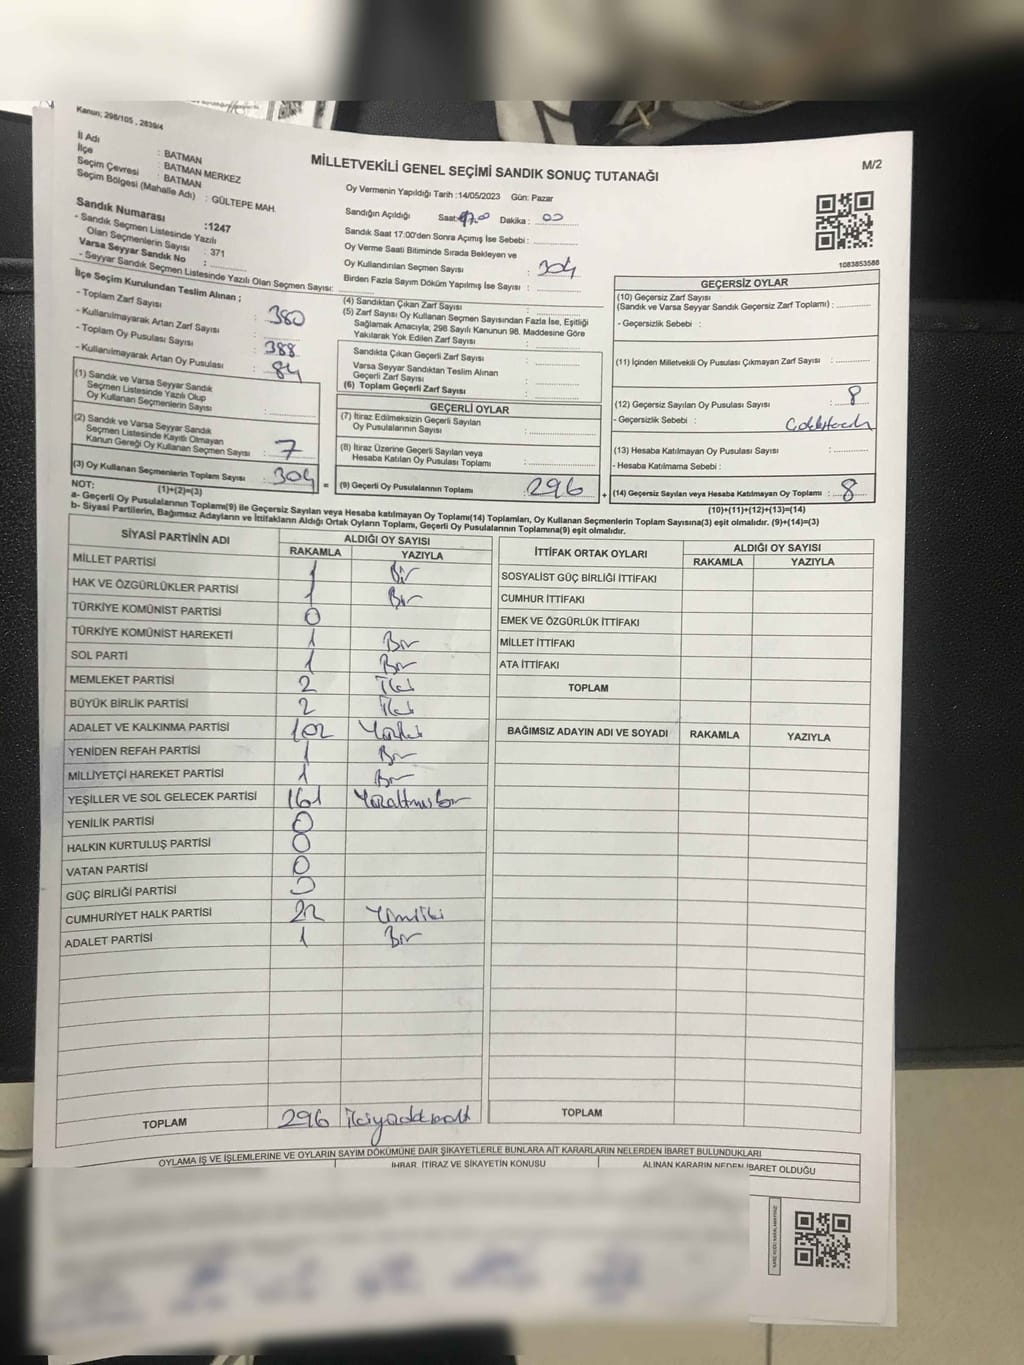 Kanun; 298/105 , 2839/4
İl Adı : BATMAN
İlçe : BATMAN MERKEZ
Seçim Çevresi : BATMAN
Seçim Bölgesi (Mahalle Adı) : GÜLTEPE MAH.
Sandık Numarası :1247
- Sandık Seçmen Listesinde Yazılı
Olan Seçmenlerin Sayısı : 371
Varsa Seyyar Sandık No :
- Seyyar Sandık Seçmen Listesinde Yazılı Olan Seçmen Sayısı:
MİLLETVEKİLİ GENEL SEÇİMİ SANDIK SONUÇ TUTANAĞI
M/2
Oy Vermenin Yapıldığı Tarih :14/05/2023 Gün: Pazar
Sandığın Açıldığı Saat: Dakika : 00
Sandık Saat 17:00'den Sonra Açılmış İse Sebebi :
Oy Verme Saati Bitiminde Sırada Bekleyen ve
Oy Kullandırılan Seçmen Sayısı : 304
Birden Fazla Sayım Döküm Yapılmış İse Sayısı :
1083853580
İlçe Seçim Kurulundan Teslim Alınan ;
- Toplam Zarf Sayısı : 380
- Kullanılmayarak Artan Zarf Sayısı :
- Toplam Oy Pusulası Sayısı : 388
- Kullanılmayarak Artan Oy Pusulası : 84
(1) Sandık ve Varsa Seyyar Sandık
Seçmen Listesinde Yazılı Olup
Oy Kullanan Seçmenlerin Sayısı :
(2) Sandık ve Varsa Seyyar Sandık
Seçmen Listesinde Kayıtlı Olmayan
Kanun Gereği Oy Kullanan Seçmen Sayısı : 7
(3) Oy Kullanan Seçmenlerin Toplam Sayısı : 304
(1)+(2)=(3)
(4) Sandıktan Çıkan Zarf Sayısı :
(5) Zarf Sayısı Oy Kullanan Seçmen Sayısından Fazla İse, Eşitliği
Sağlamak Amacıyla; 298 Sayılı Kanunun 98. Maddesine Göre
Yakılarak Yok Edilen Zarf Sayısı :
Sandıkta Çıkan Geçerli Zarf Sayısı :
Varsa Seyyar Sandıktan Teslim Alınan
Geçerli Zarf Sayısı :
(6) Toplam Geçerli Zarf Sayısı :
GEÇERLİ OYLAR
(7) İtiraz Edilmeksizin Geçerli Sayılan
Oy Pusulalarının Sayısı :
(8) İtiraz Üzerine Geçerli Sayılan veya
Hesaba Katılan Oy Pusulası Toplamı :
= (9) Geçerli Oy Pusulalarının Toplamı : 296 +
GEÇERSİZ OYLAR
(10) Geçersiz Zarf Sayısı
(Sandık ve Varsa Seyyar Sandık Geçersiz Zarf Toplamı) :
- Geçersizlik Sebebi :
(11) İçinden Milletvekili Oy Pusulası Çıkmayan Zarf Sayısı :
(12) Geçersiz Sayılan Oy Pusulası Sayısı : 8
- Geçersizlik Sebebi :
(13) Hesaba Katılmayan Oy Pusulası Sayısı :
- Hesaba Katılmama Sebebi :
(14) Geçersiz Sayılan veya Hesaba Katılmayan Oy Toplamı : 8
(10)+(11)+(12)+(13)=(14)
NOT:
a- Geçerli Oy Pusulalarının Toplamı(9) ile Geçersiz Sayılan veya Hesaba Katılmayan Oy Toplamı(14) Toplamları, Oy Kullanan Seçmenlerin Toplam Sayısına(3) eşit olmalıdır. (9)+(14)=(3)
b- Siyasi Partilerin, Bağımsız Adayların ve İttifakların Aldığı Ortak Oyların Toplamı, Geçerli Oy Pusulalarının Toplamına(9) eşit olmalıdır.
SİYASİ PARTİNİN ADI ALDIĞI OY SAYISI
RAKAMLA YAZIYLA
MİLLET PARTİSİ 1 Bir
HAK VE ÖZGÜRLÜKLER PARTİSİ 1 Bir
TÜRKİYE KOMÜNİST PARTİSİ 0
TÜRKİYE KOMÜNİST HAREKETİ 1 Bir
SOL PARTİ 1 Bir
MEMLEKET PARTİSİ 2 İki
BÜYÜK BİRLİK PARTİSİ 2 İki
ADALET VE KALKINMA PARTİSİ 102 Yüziki
YENİDEN REFAH PARTİSİ 1 Bir
MİLLİYETÇİ HAREKET PARTİSİ 1 Bir
YEŞİLLER VE SOL GELECEK PARTİSİ 161 Yüzaltmışbir
YENİLİK PARTİSİ 0
HALKIN KURTULUŞ PARTİSİ 0
VATAN PARTİSİ 0
GÜÇ BİRLİĞİ PARTİSİ 0
CUMHURİYET HALK PARTİSİ 22 Yirmiiki
ADALET PARTİSİ 1 Bir
TOPLAM 296 ikiyüzdoksanaltı
İTTİFAK ORTAK OYLARI ALDIĞI OY SAYISI
RAKAMLA YAZIYLA
SOSYALİST GÜÇ BİRLİĞİ İTTİFAKI
CUMHUR İTTİFAKI
EMEK VE ÖZGÜRLÜK İTTİFAKI
MİLLET İTTİFAKI
ATA İTTİFAKI
TOPLAM
BAĞIMSIZ ADAYIN ADI VE SOYADI RAKAMLA YAZIYLA
TOPLAM
OYLAMA İŞ VE İŞLEMLERİNE VE OYLARIN SAYIM DÖKÜMÜNE DAİR ŞİKAYETLERLE BUNLARA AİT KARARLARIN NELERDEN İBARET BULUNDUKLARI
İHBAR, İTİRAZ VE ŞİKAYETİN KONUSU ALINAN KARARIN NEDEN İBARET OLDUĞU